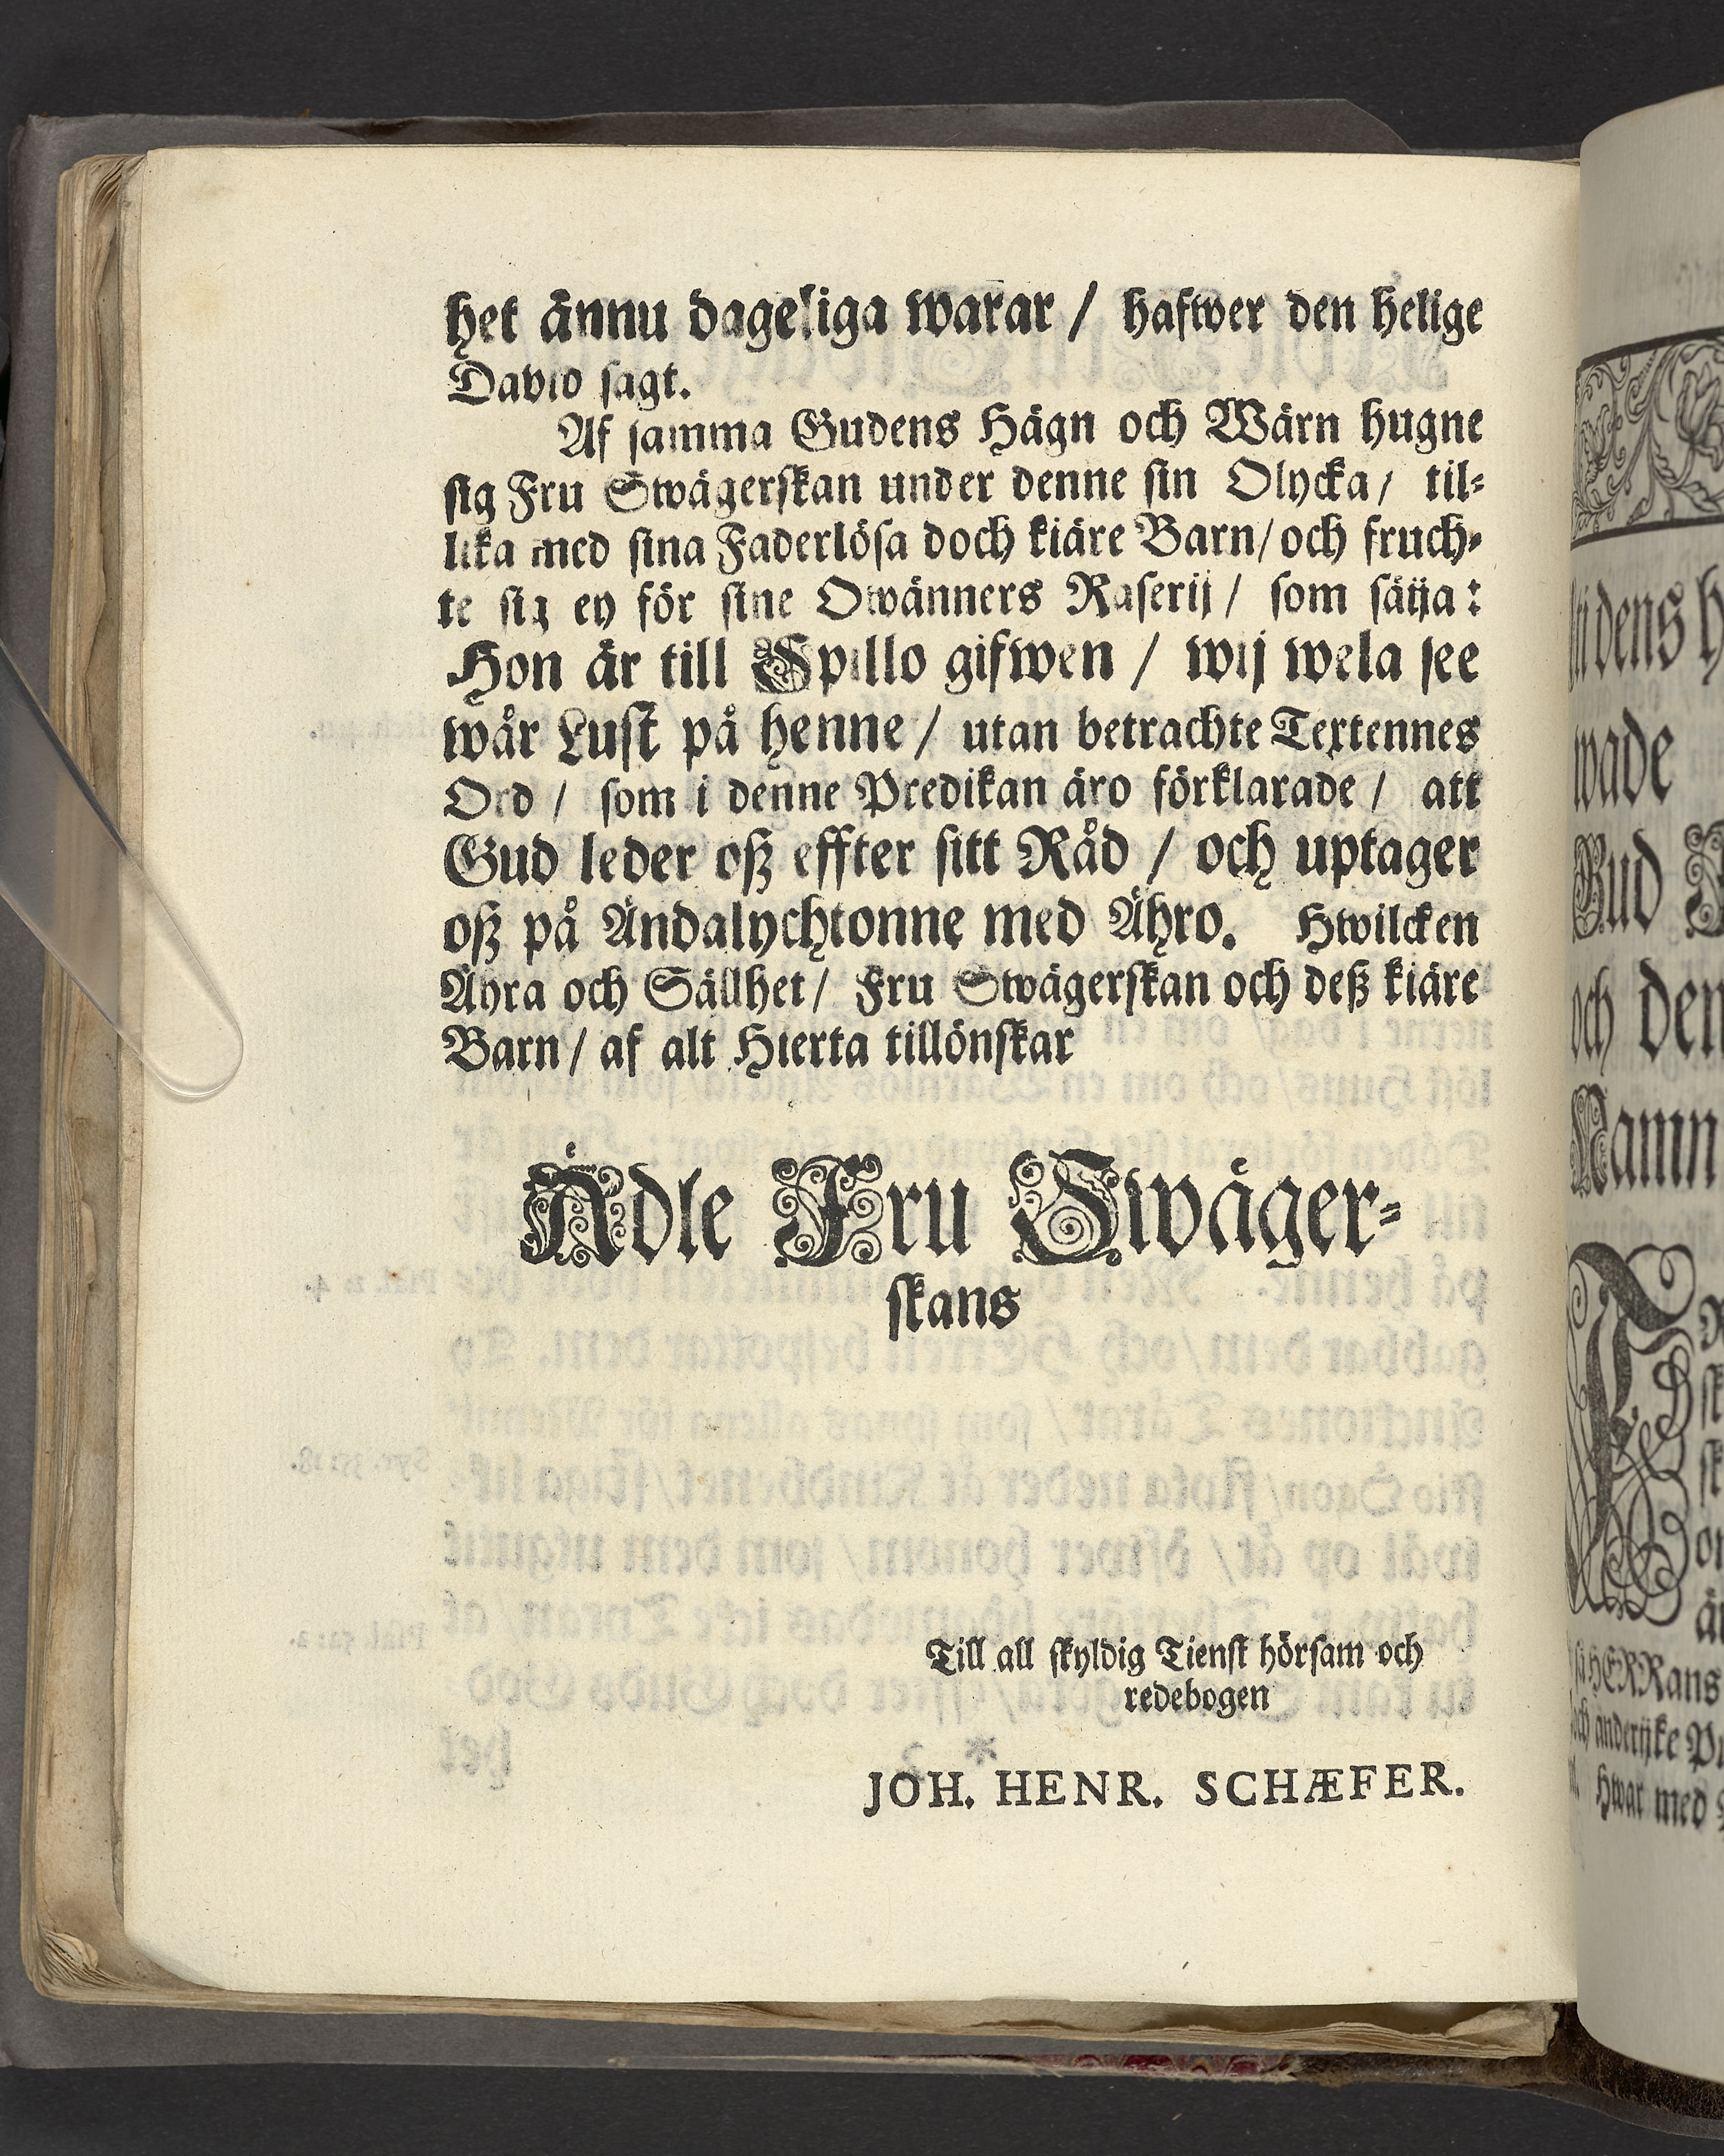 het ännu dageliga warar / hafwer den helige
David sagt.
Af samma Gudens Hägn och Wärn hugne
sig Fru Swägerskan under denne sin Olycka / til-
lika med sina Faderlösa doch kiäre Barn / och fruch-
te sig ey för sine Owänners Raserij / som säija:
Hon är till Spillo gifwen / wij wela see
wår Lust på henne / utan betrachte Textennes
Ord / som i denne Predikan äro förklarade / att
Gud leder oß effter sitt Råd / och uptager
oß på Ändalychtonne med Ähro. Hwilcken
Ähra och Sällhet / Fru Swägerskan och deß kiäre
Barn / af alt Hierta tillönskar
Ädle Fru Swäger-
skans
Till all skyldig Tienst hörsam och
redebogen
JOH. HENR. SCHÆFER.
wade
Gud
och den
Namn
HERRans
och anderijke
Hwar med